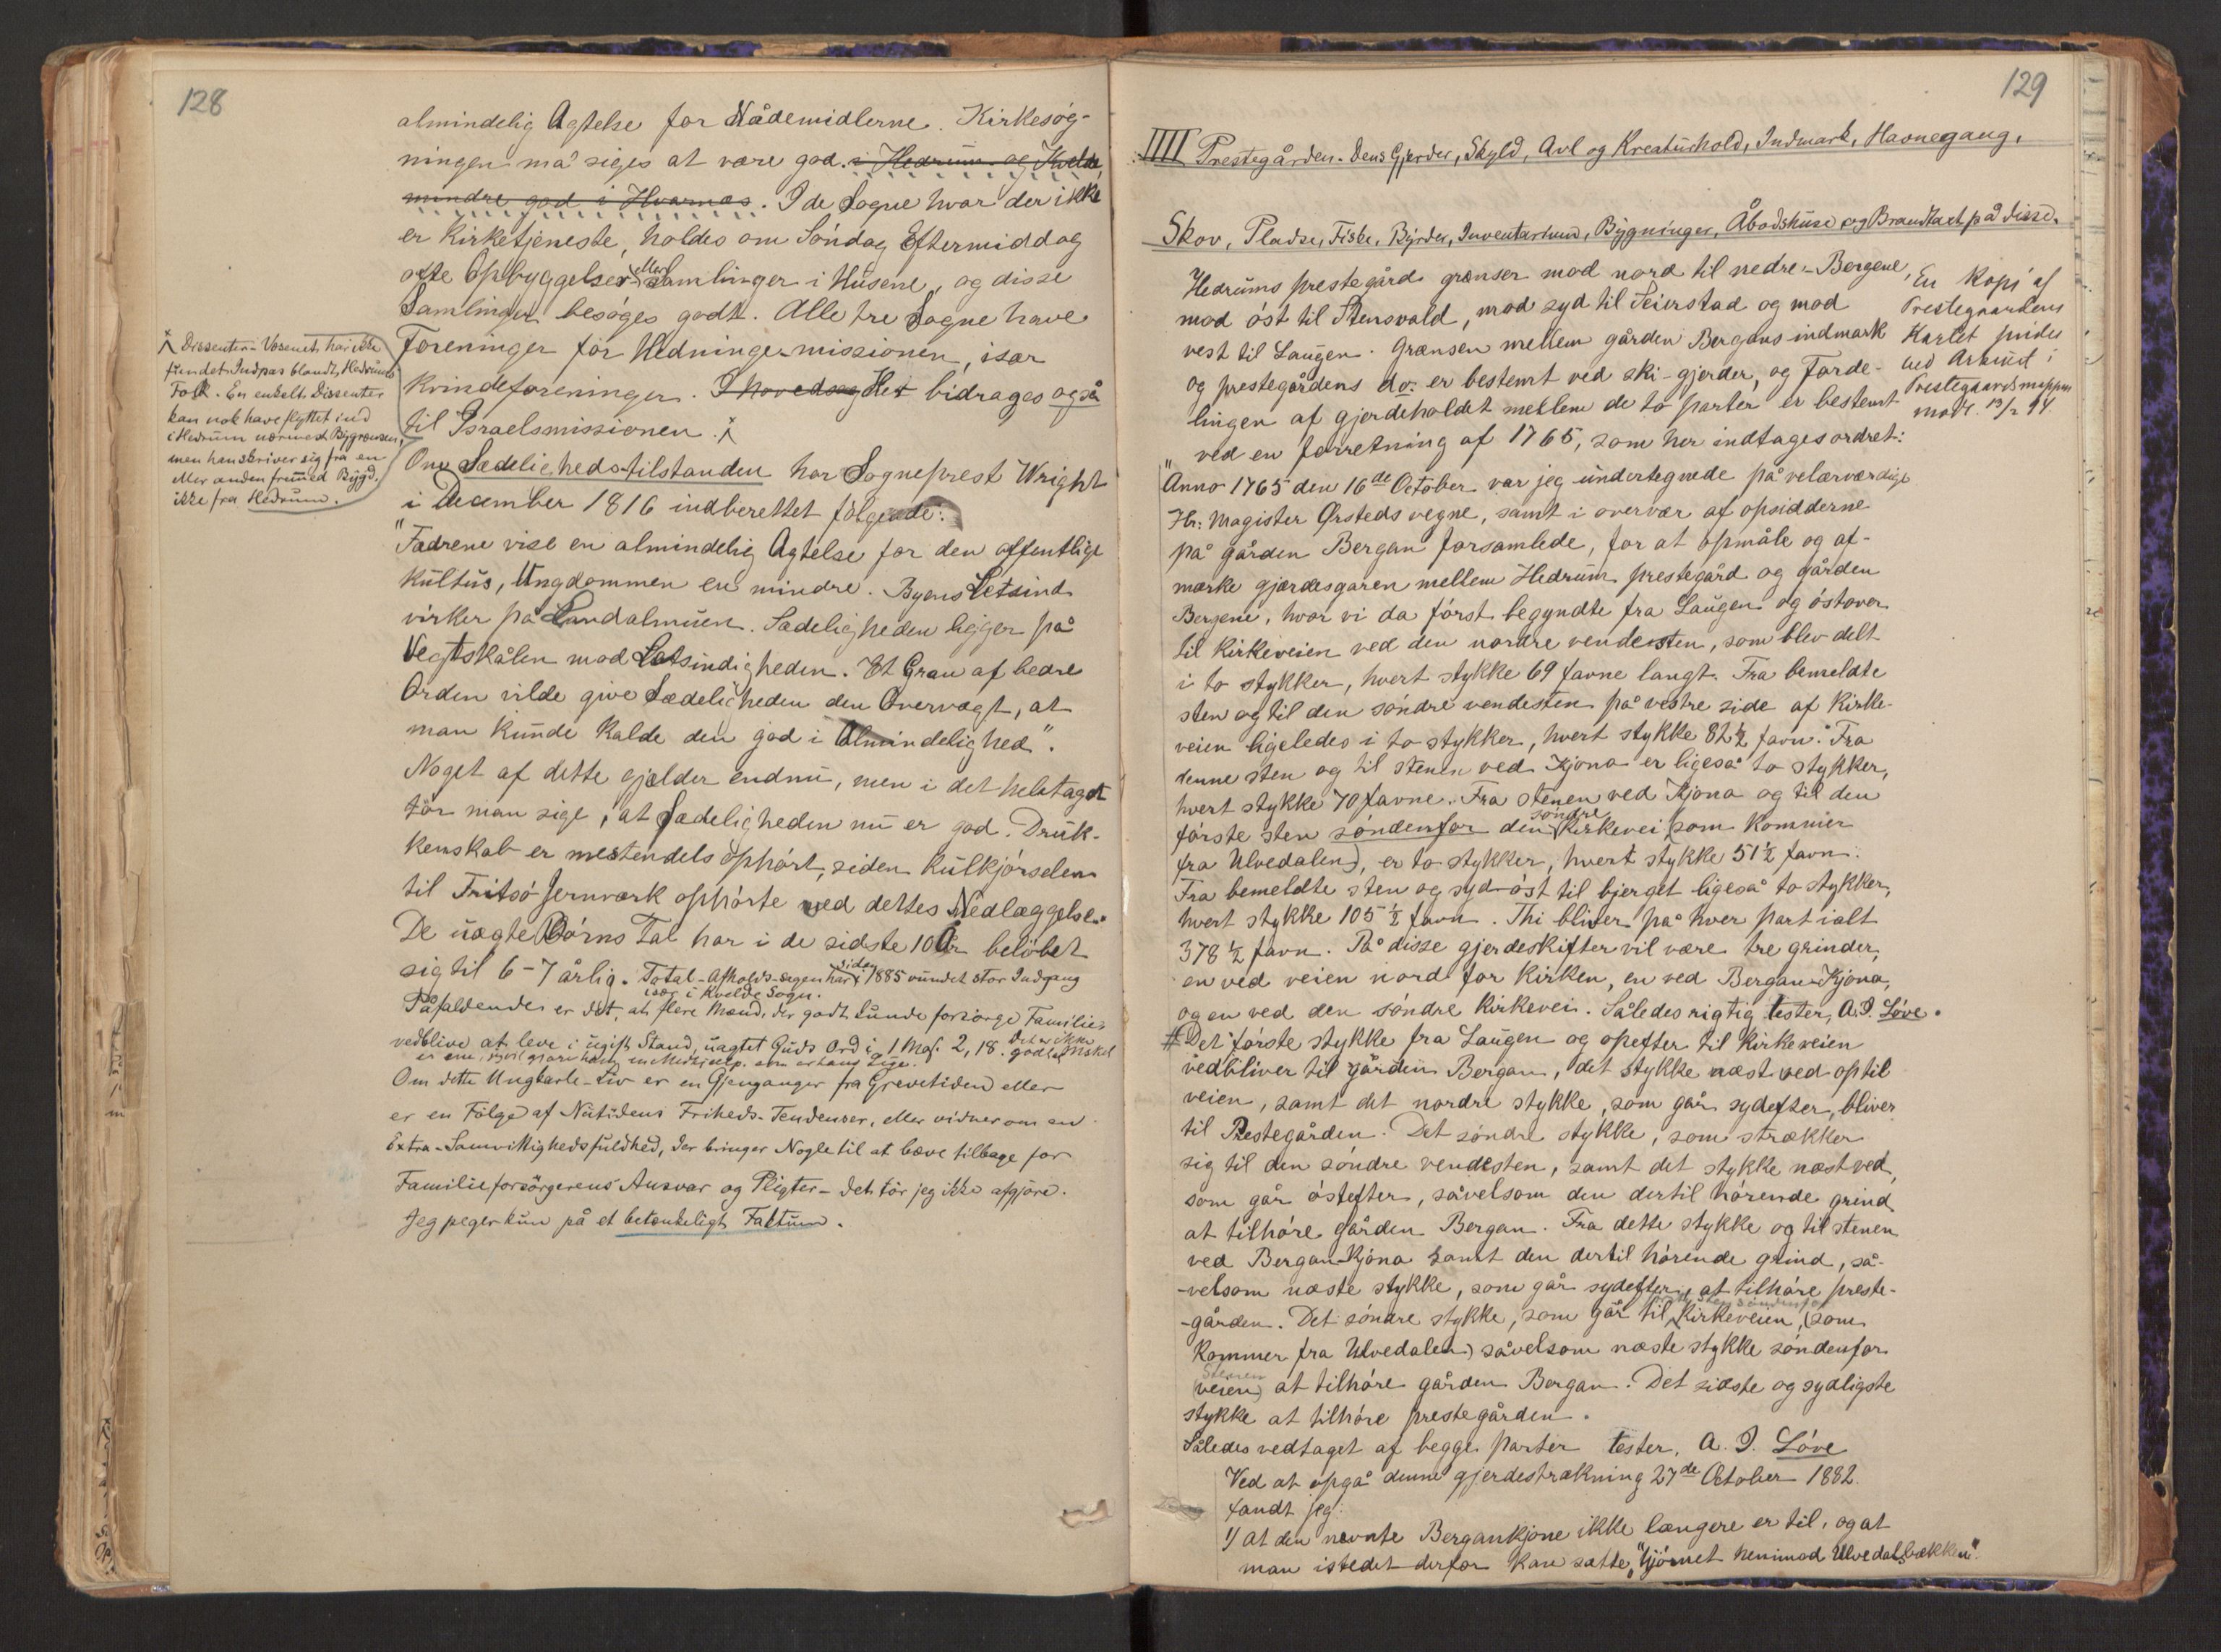 128
almindelig Agtelse for Nådemidlerne. Kirkesøg-
ningen må siges at være god. i Hedrum og Kvelde,
mindre god i Hvarnæs. I de Sogne hvor der ikke
er Kirketjeneste, holdes om Søndag Eftermiddag
ofte Opbyggelser eller Samlinger i Husene, og disse
Samlinger besøges godt. Alle tre Sogne have
Foreninger for Hedninge-missionen, især
Kvindeforeninger. I hovedsog Het bidrages også
til Israelsmissionen. X
X Dissenter-Væsenet har ikke
fundet Indpas blandt Hedrums
Folk. En enkelt Dissenter
kan nok have flyttet ind
i Hedrum nærmest Bygrænsen,
men han skriver sig fra en
eller anden fremmed Bygd,
ikke fra Hedrum.
Om Sædelighedstilstanden har Sogneprest Wright
i December 1816 indberettet følgende:
"Fædrene vise en almindelig Agtelse for den offentlige
Kultus, Ungdommen en mindre. Byens Letsind
virker på Landalmuen. Sædeligheden ligger på
Vegtskålen mod Letsindigheden. Et Gran af bedre
Orden vilde give Sædeligheden den Overvægt, at
man kunde kalde den god i Almindelighed".
Noget af dette gjælder endnu, men i det heletaget
tør man sige, at Sædeligheden nu er god. Druk-
kenskab er mestendels ophørt, siden Kulkjørselen
til Fritsø Jernværk ophørte ved dettes Nedlæggelse.
De uægte Børns Tal har i de sidste 10 År beløbet
sig til 6-7 årlig. Total-Afholds-sagen har siden 1885 vundet stor Indgang
især i Kvelde Sogn.
Påfaldende er det, at flere Mænd, der godt kunde forsørge Familie,
vedblive at leve i ugift Stand, uagtet Guds Ord i 1 Mos. 2, 18. Det er ikke godt at Mskt
er ene, jeg vil gjøre ham en Medhjælp, som er hans Lige.
Om dette Ungkarle-Liv er en Gjenganger fra Grevetiden eller
er en Følge af Nutidens Friheds-Tendenser, eller vidner om en
Extra-Samvittighedsfuldhed, der bringer Nogle til at bæve tilbage for
Familieforsørgerens Ansvar og Pligter – det tør jeg ikke afgjøre.
Jeg peger kun på et betænkeligt Faktum.
129
IIII Prestegården. Dens Gjerder, Skyld, Avl og Kreaturhold, Indmark, Havnegang,
Skov, Pladse, Fiske, Byrder, Inventarium, Bygninger, Åbodshuse og Brandtaxt på disse.
Hedrums prestegård grænser mod nord til nedre-Bergene,
mod øst til Stensvald, mod syd til Seierstad og mod
vest til Laugen. Grænsen mellem gården Bergans indmark
og prestegårdens do. er bestemt ved ski-gjerder, og forde-
lingen af gjerdeholdet mellem de to parter er bestemt
ved en forretning af 1765, som her indtages ordret:
En Kopi af
Prestegaardens
Kartet findes
ved
Prestegaardsmappen
modt. 13/2 94.
"Anno 1765 den 16de October var jeg undertegnede på velærværdige
Hr: Magister Ørsteds vegne, samt i overvær af opsidderne
på gården Bergan forsamlede, for at opmåle og af-
mærke gjærdesgaren mellem Hedrum prestegård og gården
Bergene, hvor vi da først begyndte fra Laugen og østover
til Kirkeveien ved den nordre vendesten, som blev delt
i to stykker, hvert stykke 69 favne langt. Fra bemeldte
sten og til den søndre vendesten på vestre side af Kirke-
veien ligeledes i to stykker, hvert stykke 82½ favn. Fra
denne sten og til stenen ved Kjona er ligeså to stykker,
hvert stykke 70 favne. Fra stenen ved Kjona og til den
første sten søndenfor den søndre Kirkevei (som kommer
fra Ulvedalen), er to stykker, hvert stykke 51½ favn.
Fra bemeldte sten og syd-øst til bjerget ligeså to stykker,
hvert stykke 105½ favn. Thi bliver på hver part ialt
378½ favn. På disse gjerdeskifter vil være tre grinder,
en ved veien nord for Kirken, en ved Bergan-Kjona,
og en ved den søndre Kirkevei. Således rigtig tester, A. I. Løve.
# Det første stykke fra Laugen og opefter til Kirkeveien
vedbliver til gården Bergan, det stykke næst ved op til
veien, samt det nordre stykke, som går sydefter, bliver
til Prestegården. Det søndre stykke, som strækker
sig til den søndre vendesten, samt det stykke næst ved,
som går østefter, såvelsom den dertil hørende grind
at tilhøre gården Bergan. Fra dette stykke og til stenen
ved Bergan-Kjona samt den dertil hørende grind, så-
-velsom næste stykke, som går sydefter, at tilhøre preste-
-gården. Det søndre stykke, som går til sten søndenfor Kirkeveien, (som
kommer fra Ulvedalen) såvelsom næste stykke søndenfor
Stenen
(veien) at tilhøre gården Bergan. Det sidste og sydligste
stykke at tilhøre prestegården.
Således vedtaget af begge parter tester. A. I. Løve
Ved at opgå denne gjerdestrækning 27de October 1882
fandt jeg:
1) at den nævnte Bergankjone ikke længere er til, og at
man istedet derfor kan sætte "Hjørnet henimod Ulvedalsbækken".